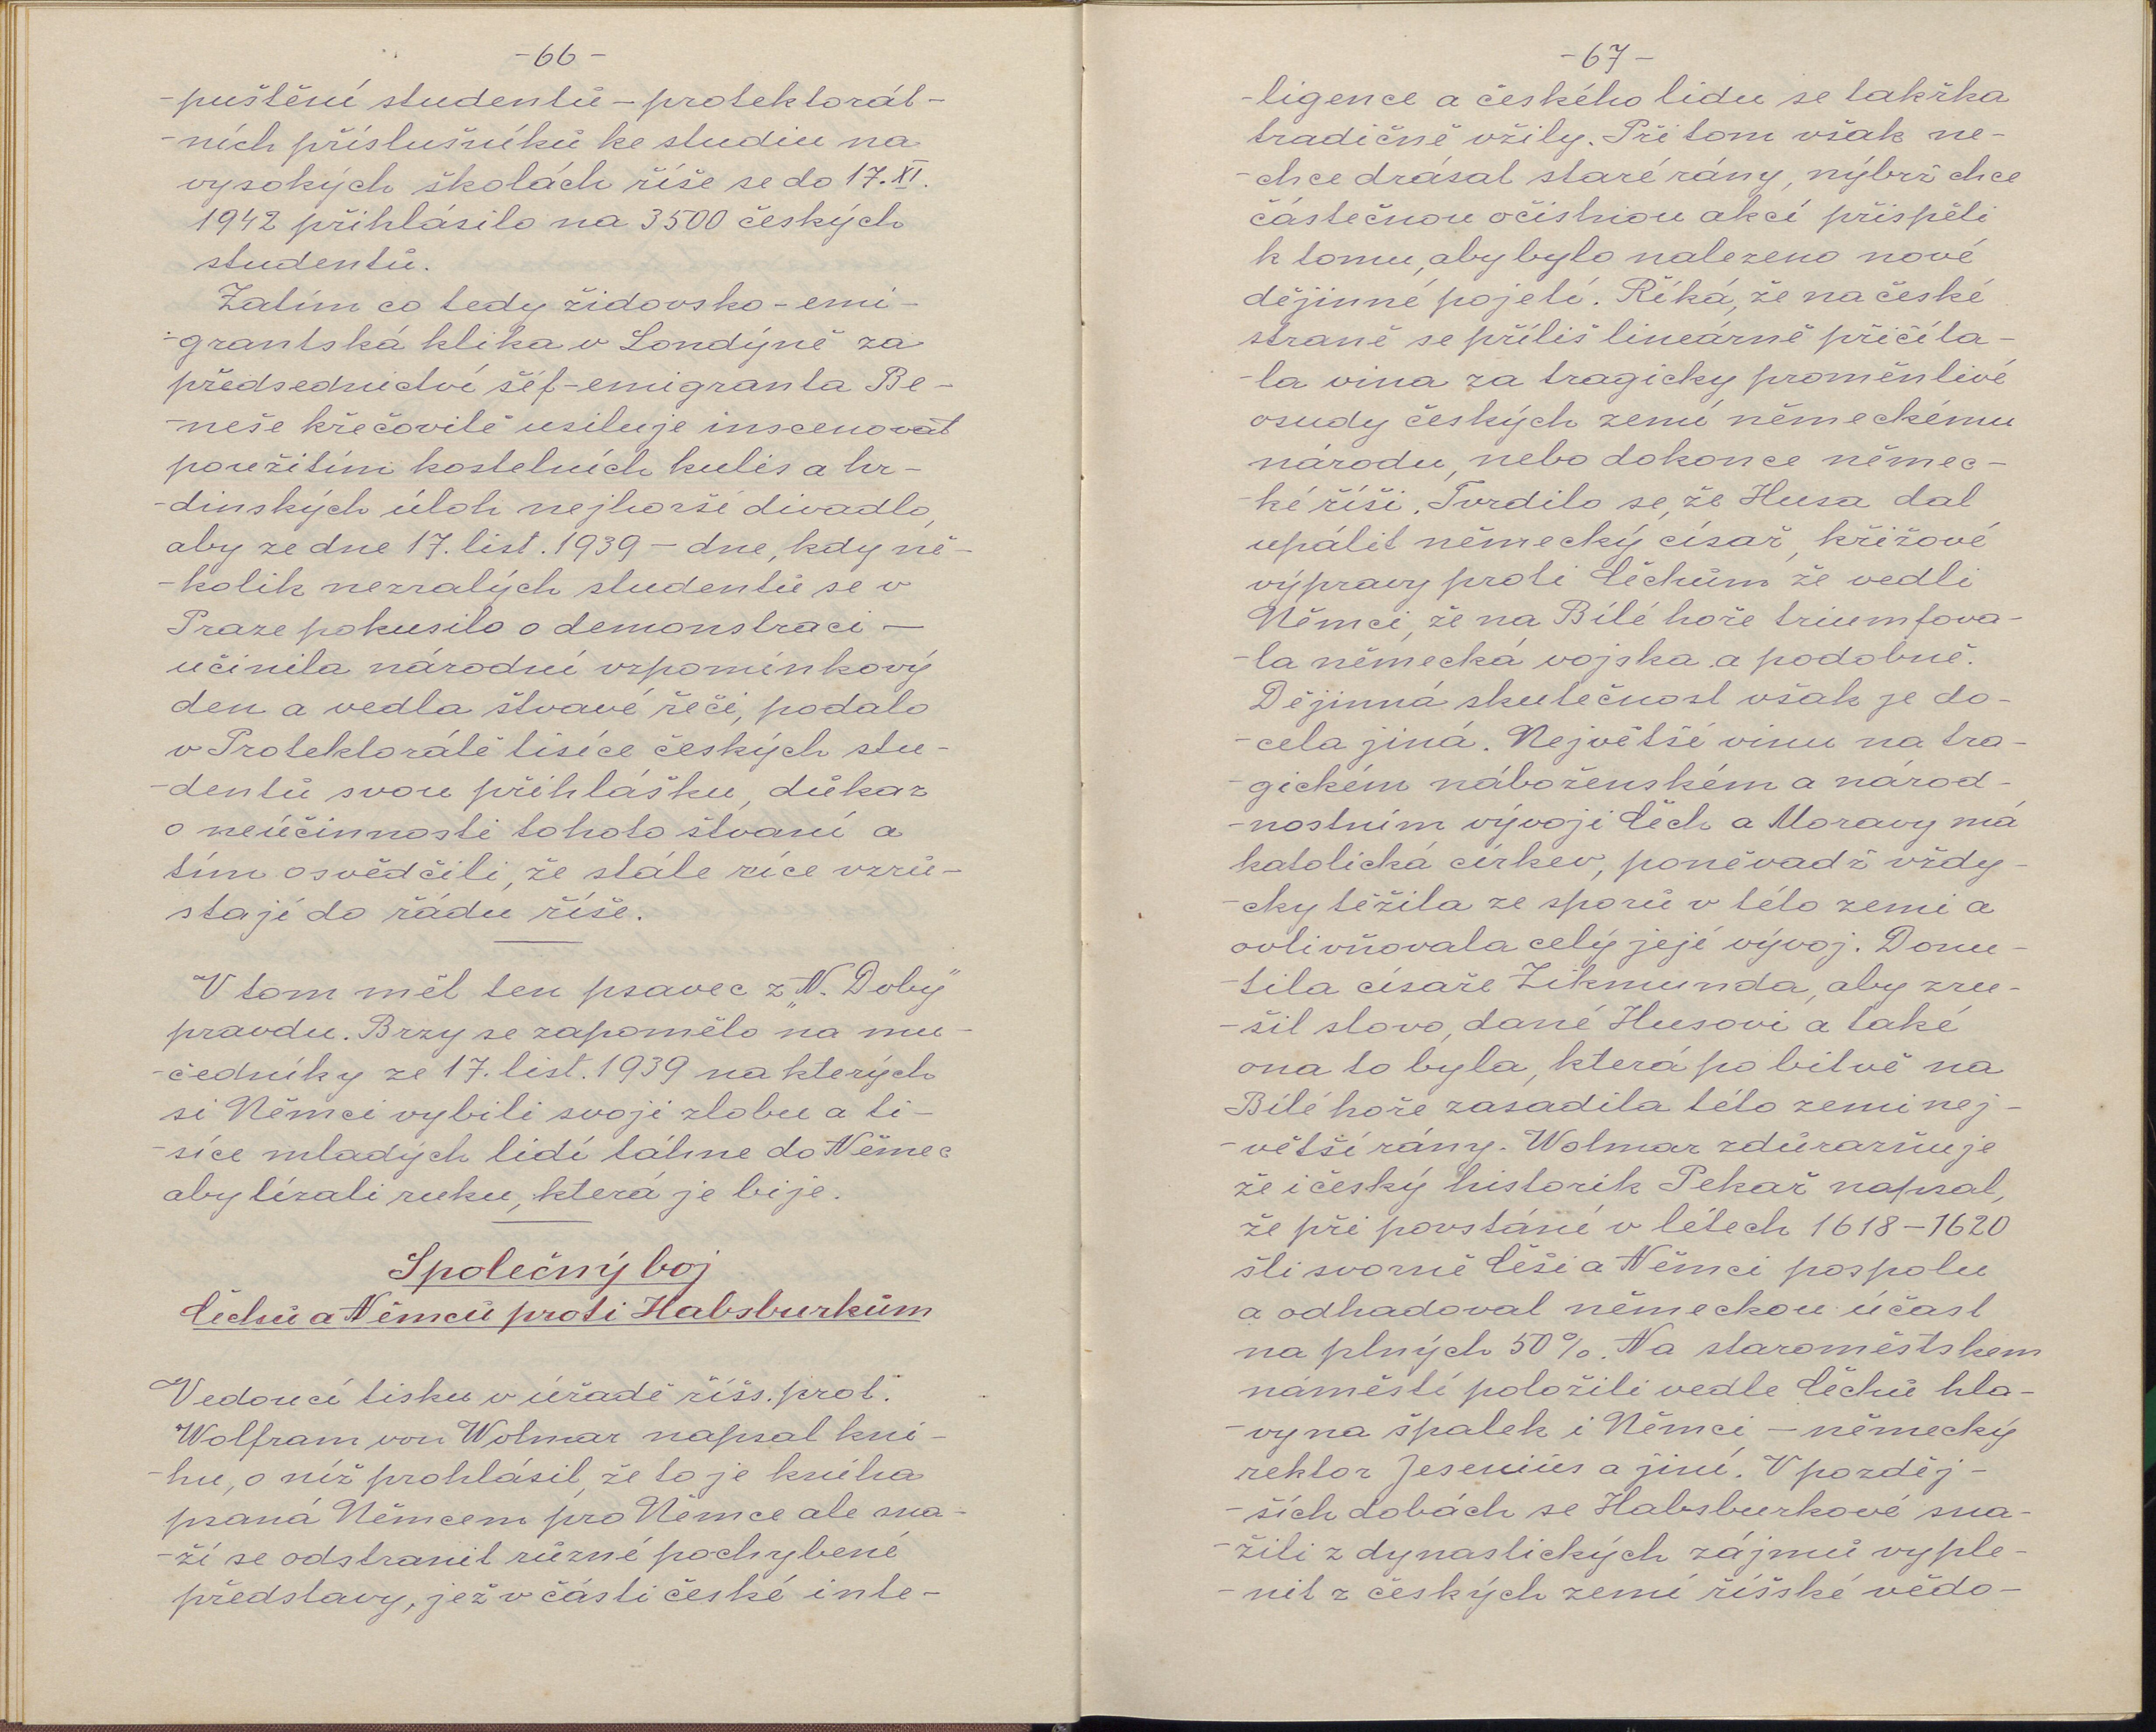 -66-
-puštění studentů - protektorát-
-ních příslušníků ke studiu na
vysokých školách říše se do 17.XI.
1942 přihlásilo na 3500 českých
studentů.
Zatím co tedy židovsko-emi-
-grantská klika v Londýně za
předsednictví šéf-emigranta Be-
-neše křečovitě usiluje inscenovat
použitím kostelních kulis a hr-
-dinských úloh nejhorší divadlo,
aby ze dne 17. list. 1939 - dne, kdy ně-
-kolik nezralých studentů se v
Praze pokusilo o demonstraci -
učinila národní vzpomínkový
den a vedla štvavé řeči, podalo
v Protektorátě tisíce českých stu-
-dentů svou přihlášku, důkaz
o neúčinnosti tohoto štvaní a
tím osvědčili, že stále více vzrů-
stají do řádu říše.
V tom měl ten psavec z „N. Doby"
pravdu. Brzy se zapomělo na mu-
-čedníky ze 17. list. 1939 na kterých
si Němci vybili svoji zlobu a ti-
-síce mladých lidí táhne do Němec
aby lízali ruku, která je bije.
Společný boj
Čechů a Němců proti Habsburkům
Vedoucí tisku v úřadě říšs. prot.
Wolfram von Wolmar napsal kni-
-hu, o níž prohlásil, že to je kniha
psaná Němcem pro Němce ale sna-
-ží se odstranit různé pochybené
představy, jež v části české inte-
-67-
-ligence a českého lidu se takřka
tradičně vžily. Při tom však ne-
-chce drásat staré rány, nýbrž chce
částečnou očistnou akcí přispěti
k tomu, aby bylo nalezeno nové
dějinné pojetí. Říká, že na české
straně se příliš lineárně přičíta-
-la vina za tragicky proměnlivé
osudy českých zemí německému
národu, nebo dokonce němec-
-ké říši. Tvrdilo se, že Husa dal
upálit německý císař, křižové
výpravy proti Čechům že vedli
Němci, že na Bílé hoře triumfova-
-la německá vojska a podobně.
Dějinná skutečnost však je do-
-cela jiná. Největší vinu na tra-
-gickém náboženském a národ-
-nostním vývoji Čech a Moravy má
katolická církev, poněvadž vždy-
-cky těžila ze sporů v této zemi a
ovlivňovala celý její vývoj. Donu-
-tila císaře Zikmunda, aby zru-
-šil slovo, dané Husovi a také
ona to byla, která po bitvě na
Bílé hoře zasadila této zemi nej-
-větší rány. Wolmar zdůrazňuje
že i český historik Pekař napsal,
že při povstání v létech 1618-1620
šli svorně Češi a Němci pospolu
a odhadoval německou účast
na plných 50%. Na staroměstskem
náměstí položili vedle Čechů hla-
-vy na špalek i Němci - německý
rektor Jesenius a jiní. V pozděj-
-ších dobách se Habsburkové sna-
-žili z dynastických zájmů vyple-
-nit z českých zemí říšské vědo-